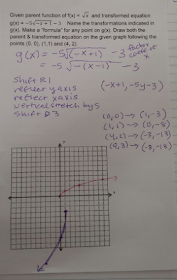 Given parent function of f(x) = √x and transformed equation
g(x) = -5√(-x+1) - 3 Name the transformations indicated in
g(x). Make a "formula" for any point on g(x). Draw both the
parent & transformed equation on the given graph following the
points (0, 0), (1,1) and (4, 2).
g(x) = -5√(-x+1) - 3 Factor
= -5√-(x-1) - 3
shift R1
reflect y axis (-x+1, -5y-3)
reflect x axis
vertical stretch by 5 (0,0) → (1,-3)
shift D3 (1,1) → (0,-8)
(4,2) → (-3,-13)
(9,3) → (-8,-18)